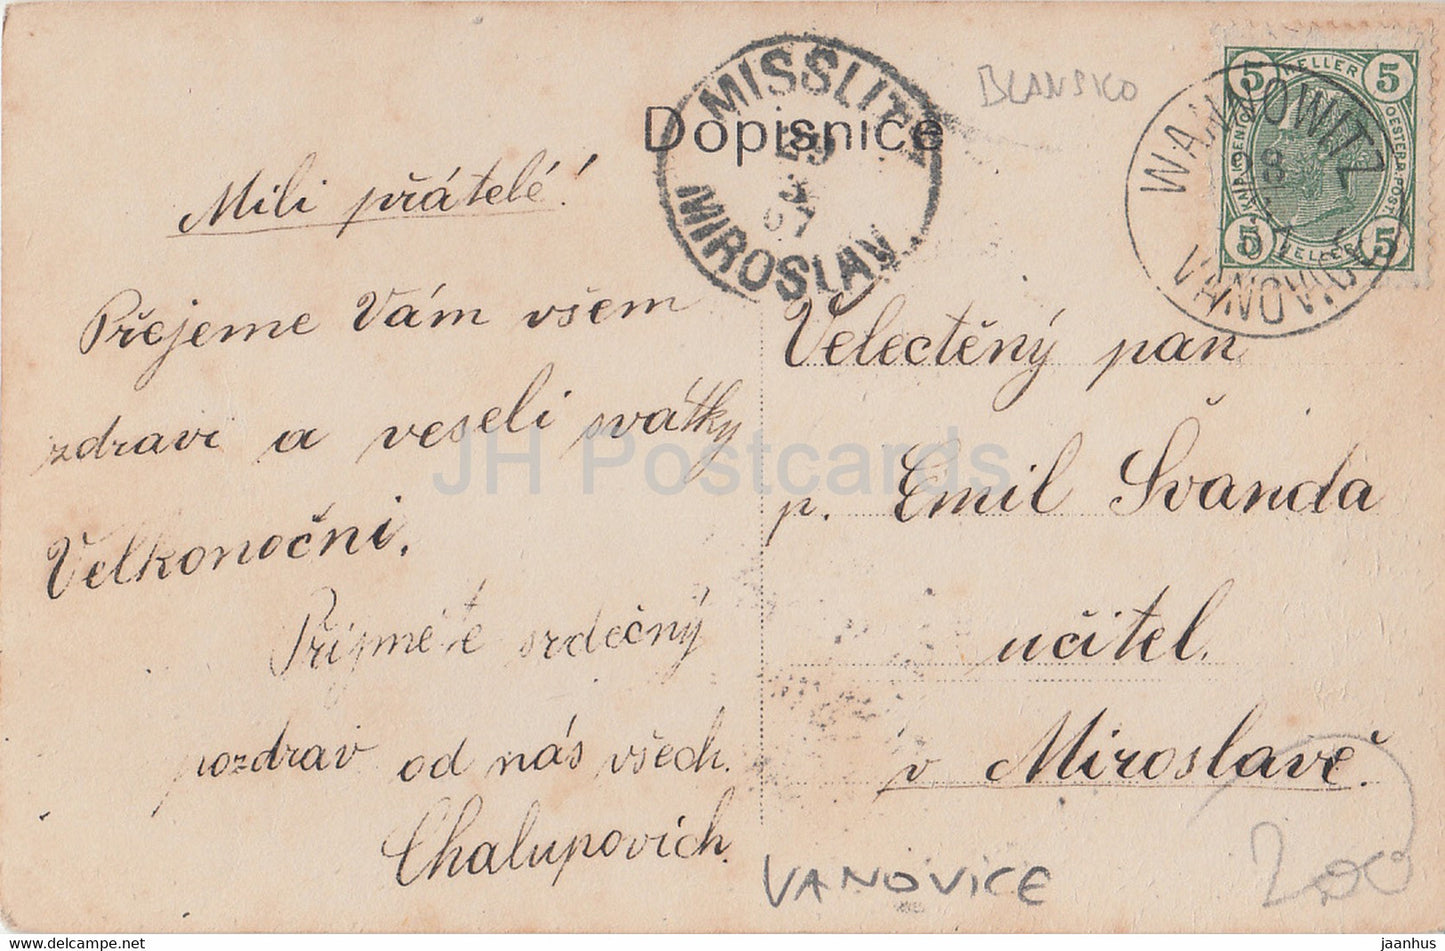 Dopisnice
MISSLITZ
29
3
07
MIROSLAV
BLANSKO
WANNOWITZ
28
07
VANOVICE
5 HELLER 5
5 HELLER 5
Mili přátelé!
Přejeme Vám všem
zdravé a veselí svátky
Velkonoční.
Přijměte srdečný
pozdrav od nás všech.
Chalupovich.
Velectěný pan
p. Emil Švanda
učitel.
v Miroslavě.
VANOVICE
200
JH Postcards
hippostcard.com
jaanhus